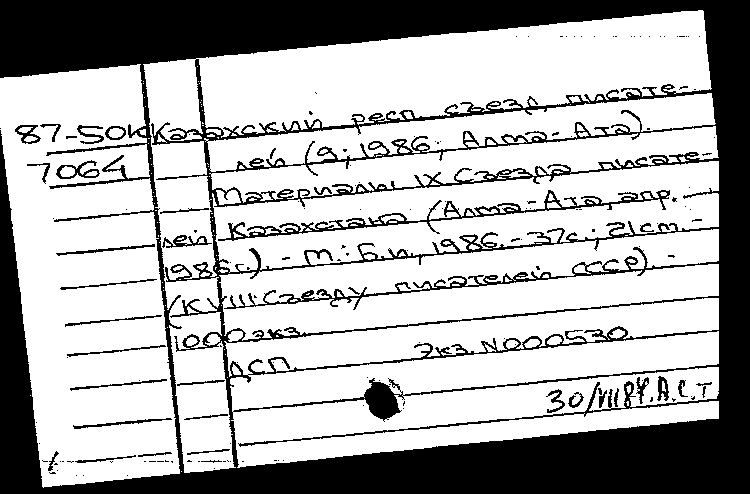 87-50к Казахский респ. съезд писате-
7064 лей (9; 1986; Алма-Ата).
Материалы IX съезда писате-
лей Казахстана (Алма-Ата, апр.
1986г.). - М.: Б.и., 1986. - 37с.; 21 см. -
(К VIII съезду писателей СССР). -
1000 экз.
ДСП. Экз. N000530
30/VII 87. А.С.Т